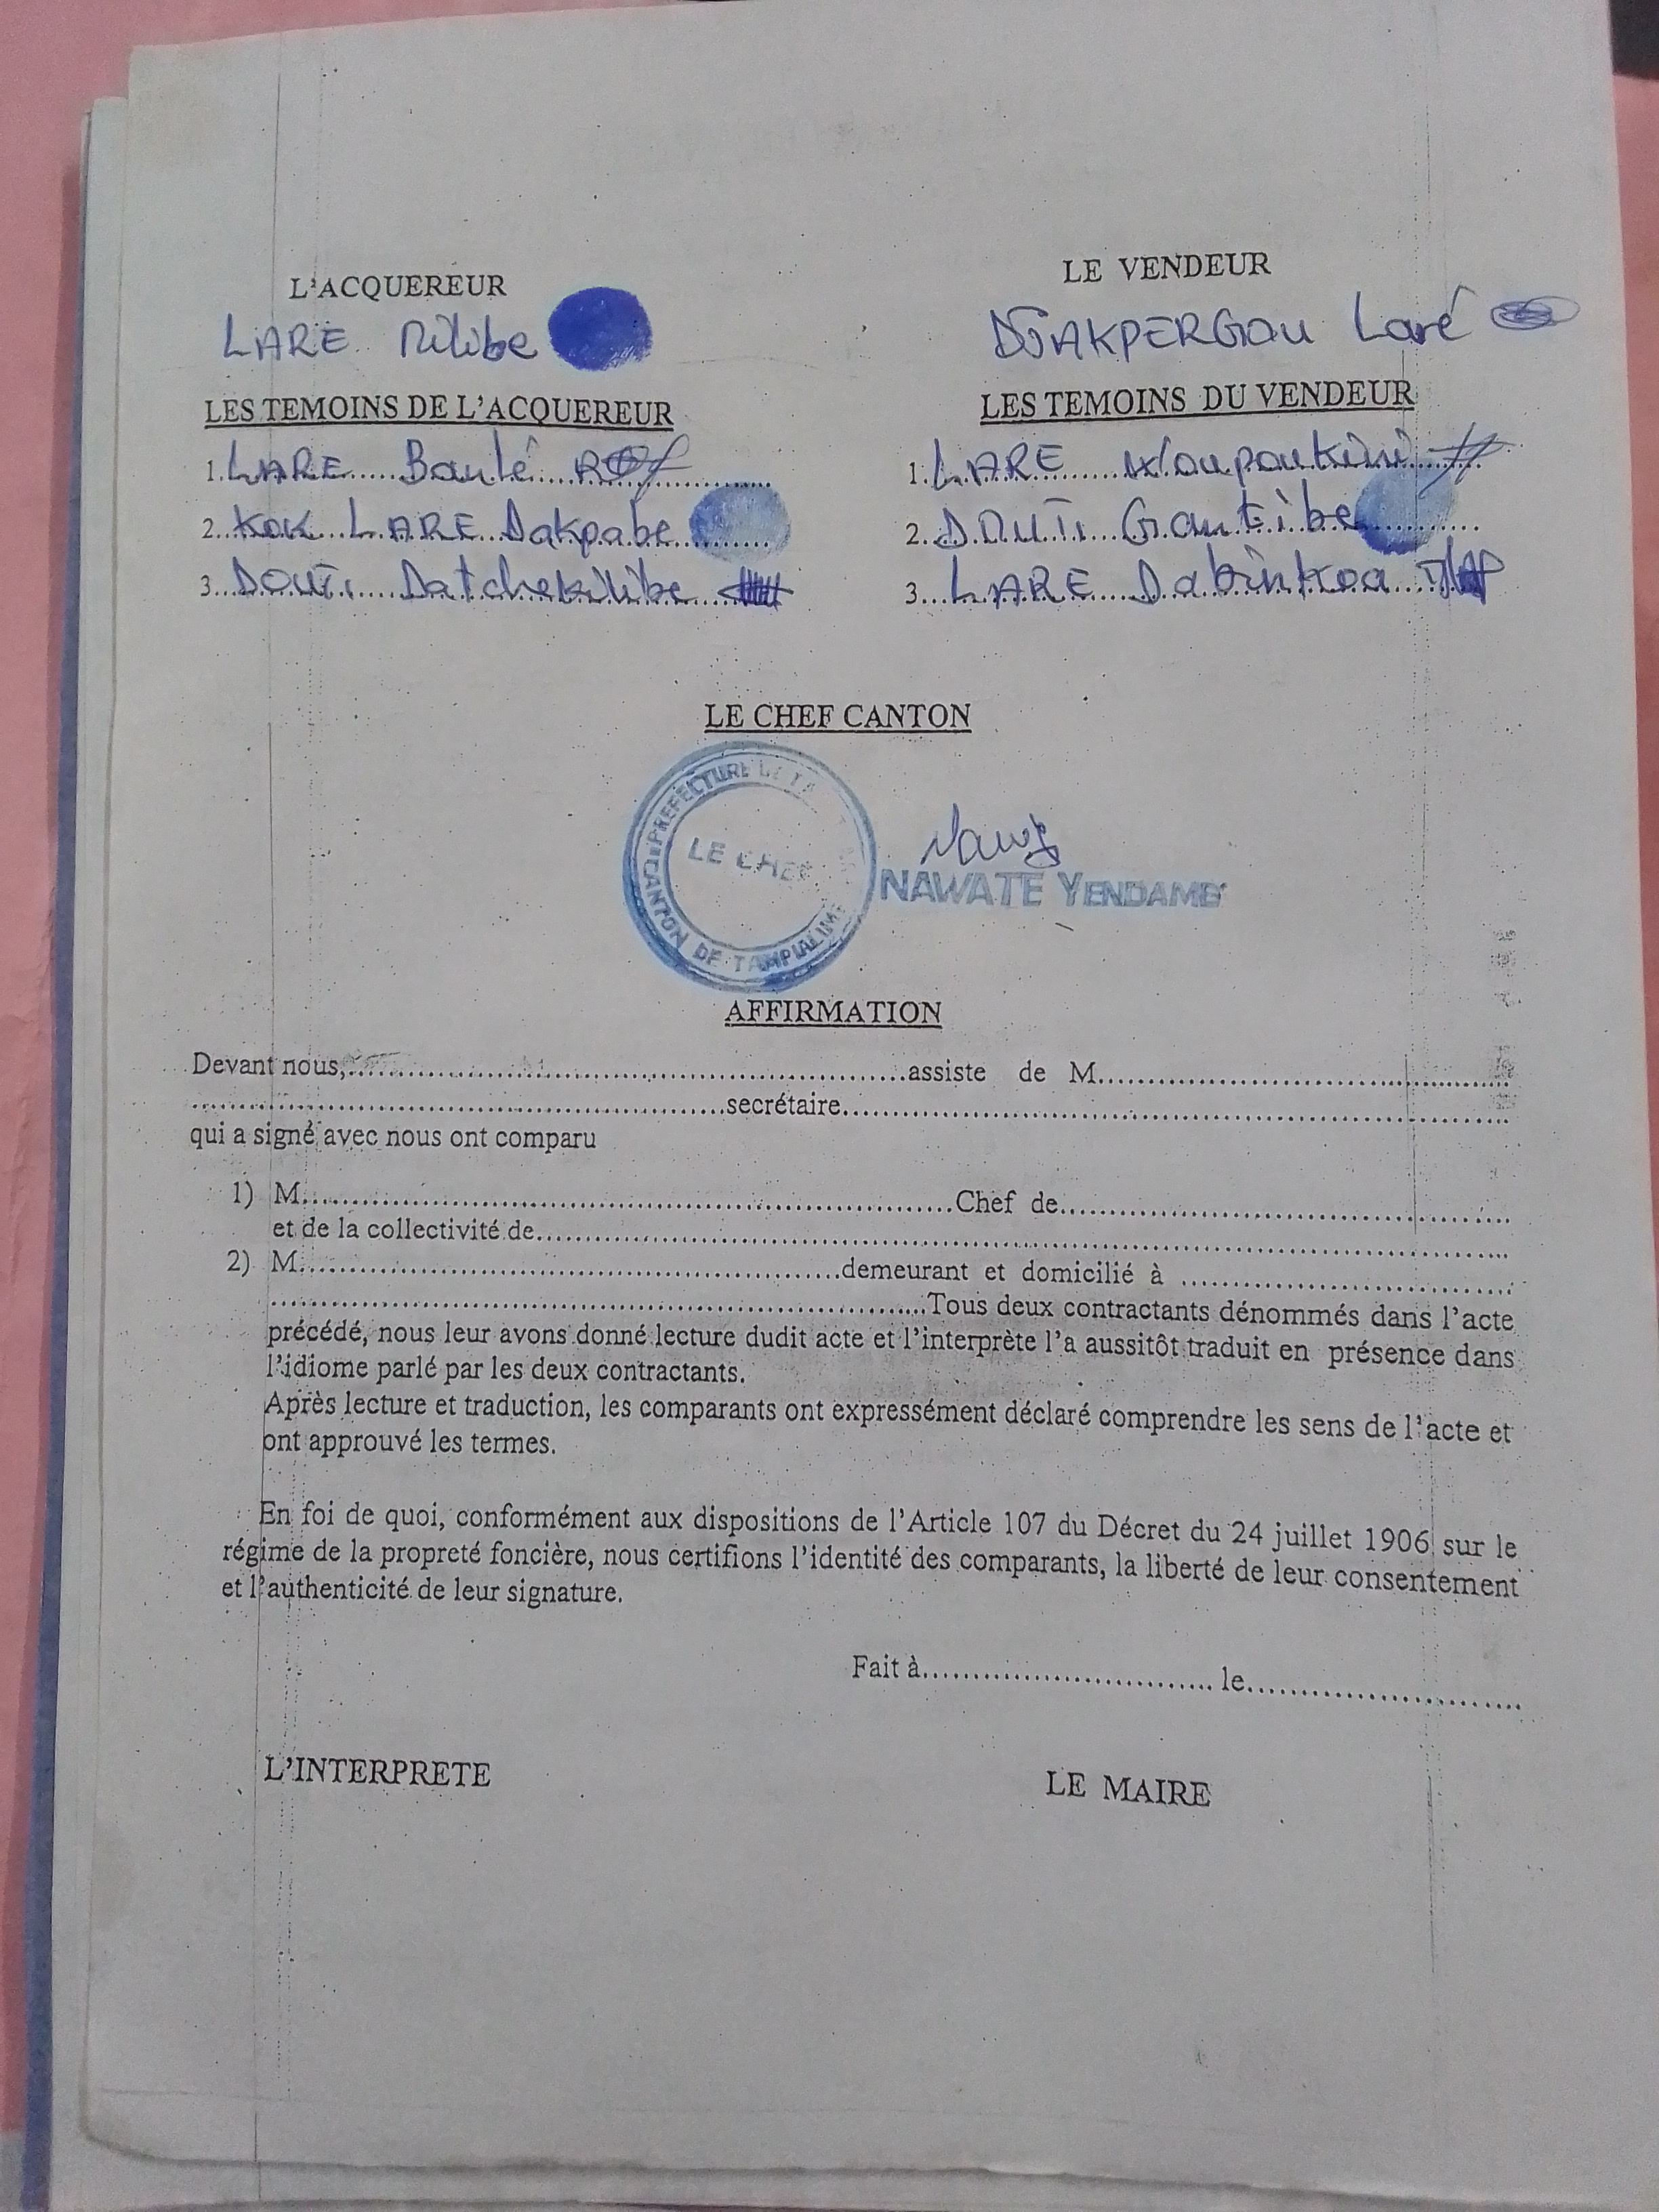 L'ACQUEREUR
LE VENDEUR
LARE Nilibe
DJAKPERGOU Laré
LES TEMOINS DE L'ACQUEREUR
LES TEMOINS DU VENDEUR
1. LARE Banlé
1. LARE Woupoukini
2. KOK LARE Dakpabe
2. DOUTI Gantibe
3. DOUTI Datchekilibe
3. LARE Dabinkoa
LE CHEF CANTON
PREFECTURE DE
LE CHEF
CANTON DE TAMPIALIME
NAWATE YENDAME
AFFIRMATION
Devant nous,..............................assiste de M..............................
..............................secrétaire..............................
qui a signé avec nous ont comparu
1) M..............................Chef de..............................
et de la collectivité de..............................
2) M..............................demeurant et domicilié à ..............................
..............................Tous deux contractants dénommés dans l'acte
précédé, nous leur avons donné lecture dudit acte et l'interprète l'a aussitôt traduit en présence dans
l'idiome parlé par les deux contractants.
Après lecture et traduction, les comparants ont expressément déclaré comprendre les sens de l'acte et
ont approuvé les termes.
En foi de quoi, conformément aux dispositions de l'Article 107 du Décret du 24 juillet 1906 sur le
régime de la propreté foncière, nous certifions l'identité des comparants, la liberté de leur consentement
et l'authenticité de leur signature.
Fait à.............................. le..............................
L'INTERPRETE
LE MAIRE